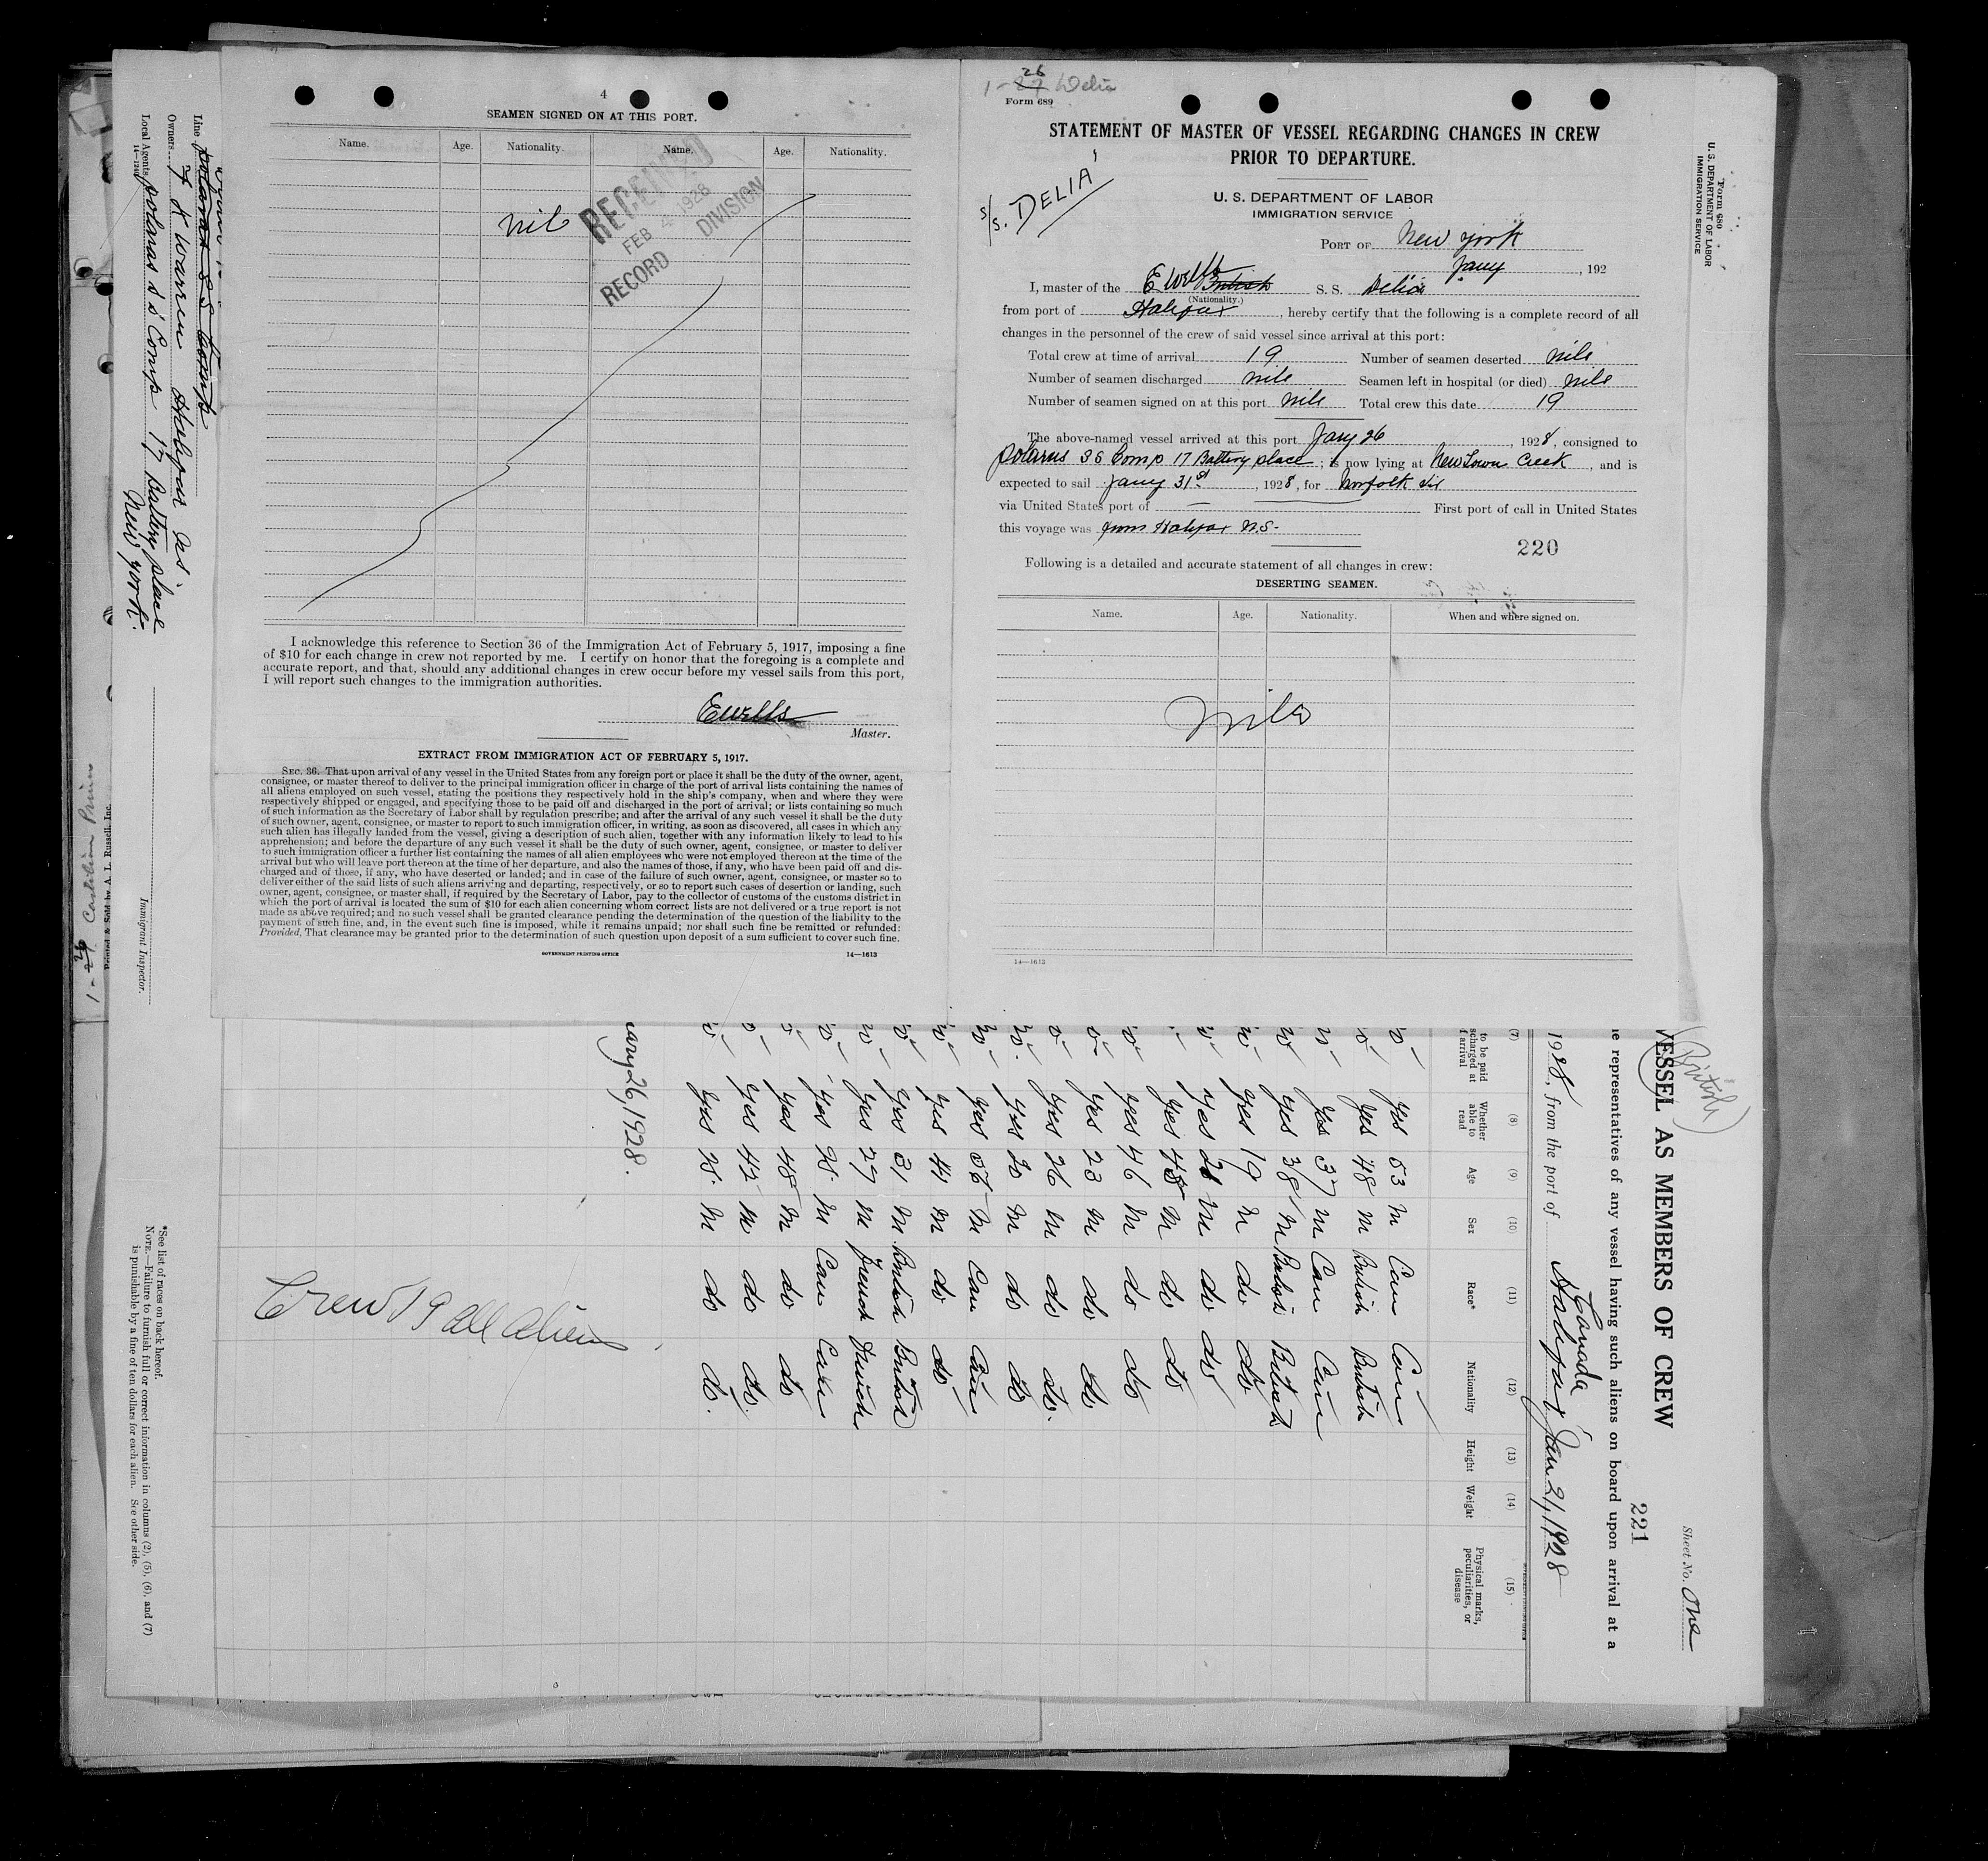 4
SEAMEN SIGNED ON AT THIS PORT.
Name. Age. Nationality. Name. Age. Nationality.
nil
RECEIVED
FEB 4 1928
RECORD DIVISION
I acknowledge this reference to Section 36 of the Immigration Act of February 5, 1917, imposing a fine
of $10 for each change in crew not reported by me. I certify on honor that the foregoing is a complete and
accurate report, and that, should any additional changes in crew occur before my vessel sails from this port,
I will report such changes to the immigration authorities.
E Wells
Master.
EXTRACT FROM IMMIGRATION ACT OF FEBRUARY 5, 1917.
SEC. 36. That upon arrival of any vessel in the United States from any foreign port or place it shall be the duty of the owner, agent,
consignee, or master thereof to deliver to the principal immigration officer in charge of the port of arrival lists containing the names of
all aliens employed on such vessel, stating the positions they respectively hold in the ship's company, when and where they were
respectively shipped or engaged, and specifying those to be paid off and discharged in the port of arrival; or lists containing so much
of such information as the Secretary of Labor shall by regulation prescribe; and after the arrival of any such vessel it shall be the duty
of such owner, agent, consignee, or master to report to such immigration officer, in writing, as soon as discovered, all cases in which any
such alien has illegally landed from the vessel, giving a description of such alien, together with any information likely to lead to his
apprehension; and before the departure of any such vessel it shall be the duty of such owner, agent, consignee, or master to deliver
to such immigration officer a further list containing the names of all alien employees who were not employed thereon at the time of the
arrival but who will leave port thereon at the time of her departure, and also the names of those, if any, who have been paid off and dis-
charged and of those, if any, who have deserted or landed; and in case of the failure of such owner, agent, consignee, or master so to
deliver either of the said lists of such aliens arriving and departing, respectively, or so to report such cases of desertion or landing, such
owner, agent, consignee, or master shall, if required by the Secretary of Labor, pay to the collector of customs of the customs district in
which the port of arrival is located the sum of $10 for each alien concerning whom correct lists are not delivered or a true report is not
made as above required; and no such vessel shall be granted clearance pending the determination of the question of the liability to the
payment of such fine, and, in the event such fine is imposed, while it remains unpaid; nor shall such fine be remitted or refunded:
Provided, That clearance may be granted prior to the determination of such question upon deposit of a sum sufficient to cover such fine.
GOVERNMENT PRINTING OFFICE 14—1613
26
1-27 Delia
Form 689
STATEMENT OF MASTER OF VESSEL REGARDING CHANGES IN CREW
PRIOR TO DEPARTURE.
S/S. DELIA
U. S. DEPARTMENT OF LABOR
IMMIGRATION SERVICE
PORT OF New York
Jany , 192
I, master of the E Wells British S. S. Delia
(Nationality.)
from port of Halifax , hereby certify that the following is a complete record of all
changes in the personnel of the crew of said vessel since arrival at this port:
Total crew at time of arrival 19 Number of seamen deserted nils
Number of seamen discharged nils Seamen left in hospital (or died) nils
Number of seamen signed on at this port nils Total crew this date 19
The above-named vessel arrived at this port Jany 26 , 1928, consigned to
Polarus SS Comp 17 Battery place ; is now lying at New Town Creek , and is
expected to sail Jany 31st , 1928, for Norfolk
via United States port of — First port of call in United States
this voyage was from Halifax N.S.
220
Following is a detailed and accurate statement of all changes in crew:
DESERTING SEAMEN.
Name. Age. Nationality. When and where signed on.
nils
14—1613
Form 689
U. S. DEPARTMENT OF LABOR
IMMIGRATION SERVICE
Line
Owners of K Warren Halifax
Local Agents Polarus SS Comp 17 Battery place
New York.
14—1240
Immigrant Inspector.
Printed & Sold by A. L. Russell, Inc.
Sheet No. One
221
(British)
VESSEL AS MEMBERS OF CREW
e representatives of any vessel having such aliens on board upon arrival at a
Canada
1928, from the port of Halifax, Jan 21, 1928
(7) (8) (9) (10) (11) (12) (13) (14) (15)
to be paid scharged at f arrival Whether able to read Age Sex Race* Nationality Height Weight Physical marks, peculiarities, or disease
yes 53 M Can Can
yes 48 M British British
yes 37 M Can Can
yes 38 M British British
yes 19 M do do
yes M do do
yes 48 M do do
yes 46 M do do
yes 23 M do do
yes 26 M do do.
yes 20 M do do
yes 56 M Can Can
yes 41 M do do
yes 31 M British British
yes 27 M French French
yes 25 M Can Can
yes 48 M do do
yes 42 M do do.
yes 25 M do do.
uary 26, 1928.
Crew 19 all aliens
*See list of races on back hereof.
NOTE.—Failure to furnish full or correct information in columns (2), (5), (6), and (7)
is punishable by a fine of ten dollars for each alien. See other side.